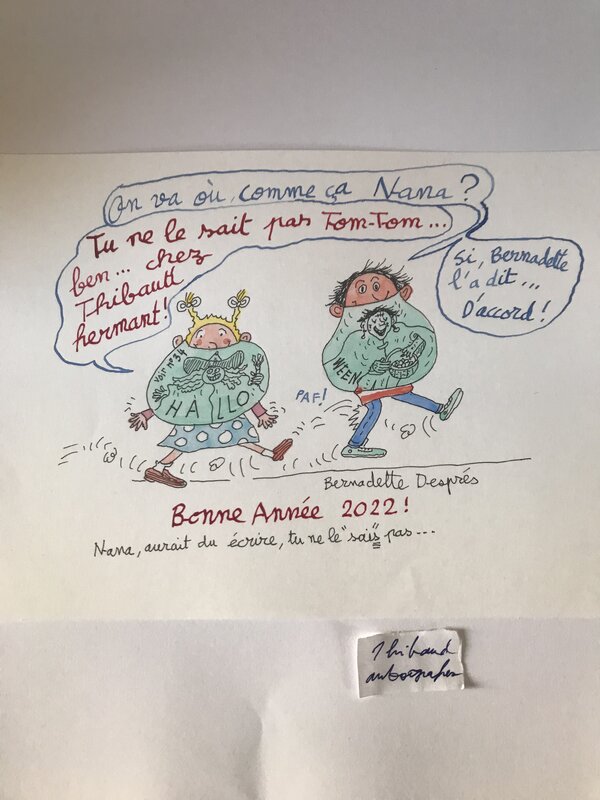 On va où, comme ça Nana ?
Tu ne le sait pas Tom-Tom...
ben... chez
Thibault
hermant!
Si, Bernadette
l'a dit...
D'accord !
voir n° 34
HALLO
WEEN
PAF!
Bernadette Després
Bonne Année 2022 !
Nana, aurait du écrire, tu ne le "sais" pas ...
Thibaud
autographes